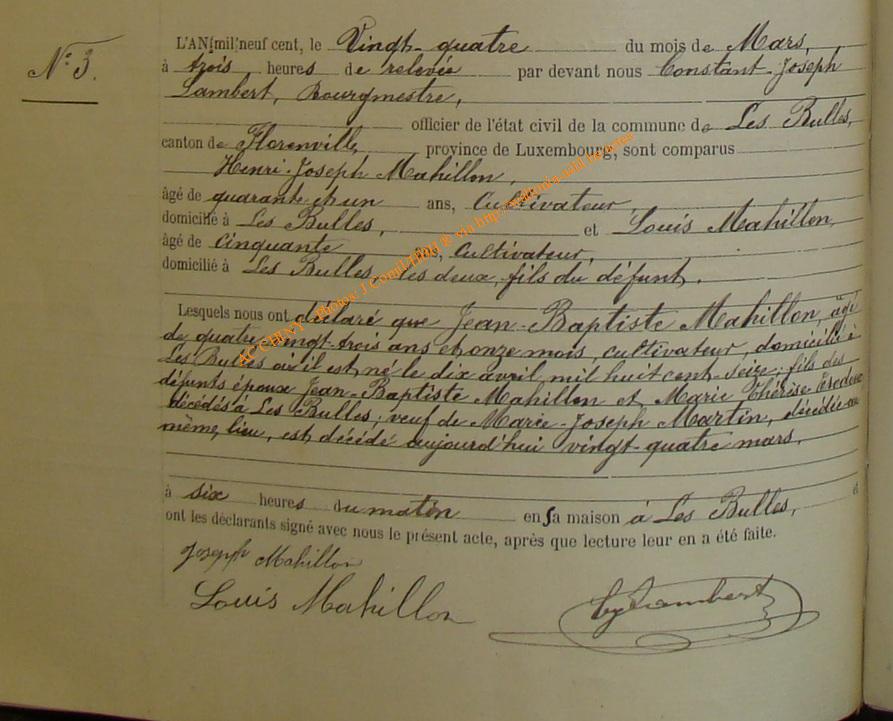 N.º 3.
L'AN mil neuf cent, le Vingt-quatre du mois de Mars,
à trois heures de relevée par devant nous Constant-Joseph
Lambert, Bourgmestre,
officier de l'état civil de la commune de Les Bulles,
canton de Florenville, province de Luxembourg, sont comparus
Henri-Joseph Mahillon,
âgé de quarante et un ans, Cultivateur,
domicilié à Les Bulles, et Louis Mahillon,
âgé de cinquante ans, Cultivateur,
domicilié à Les Bulles, les deux, fils du défunt.
Lesquels nous ont déclaré que Jean-Baptiste Mahillon, âgé
de quatre-vingt-trois ans et onze mois, cultivateur, domicilié à
Les Bulles où il est né le dix avril mil huit cent seize; fils des
défunts époux Jean-Baptiste Mahillon et Marie Thérèse
décédés à Les Bulles; veuf de Marie-Joseph Martin, décédée au
même lieu, est décédé aujourd'hui vingt-quatre mars,
à six heures du matin en sa maison à Les Bulles, et
ont les déclarants signé avec nous le présent acte, après que lecture leur en a été faite.
Joseph Mahillon
Louis Mahillon
Lambert